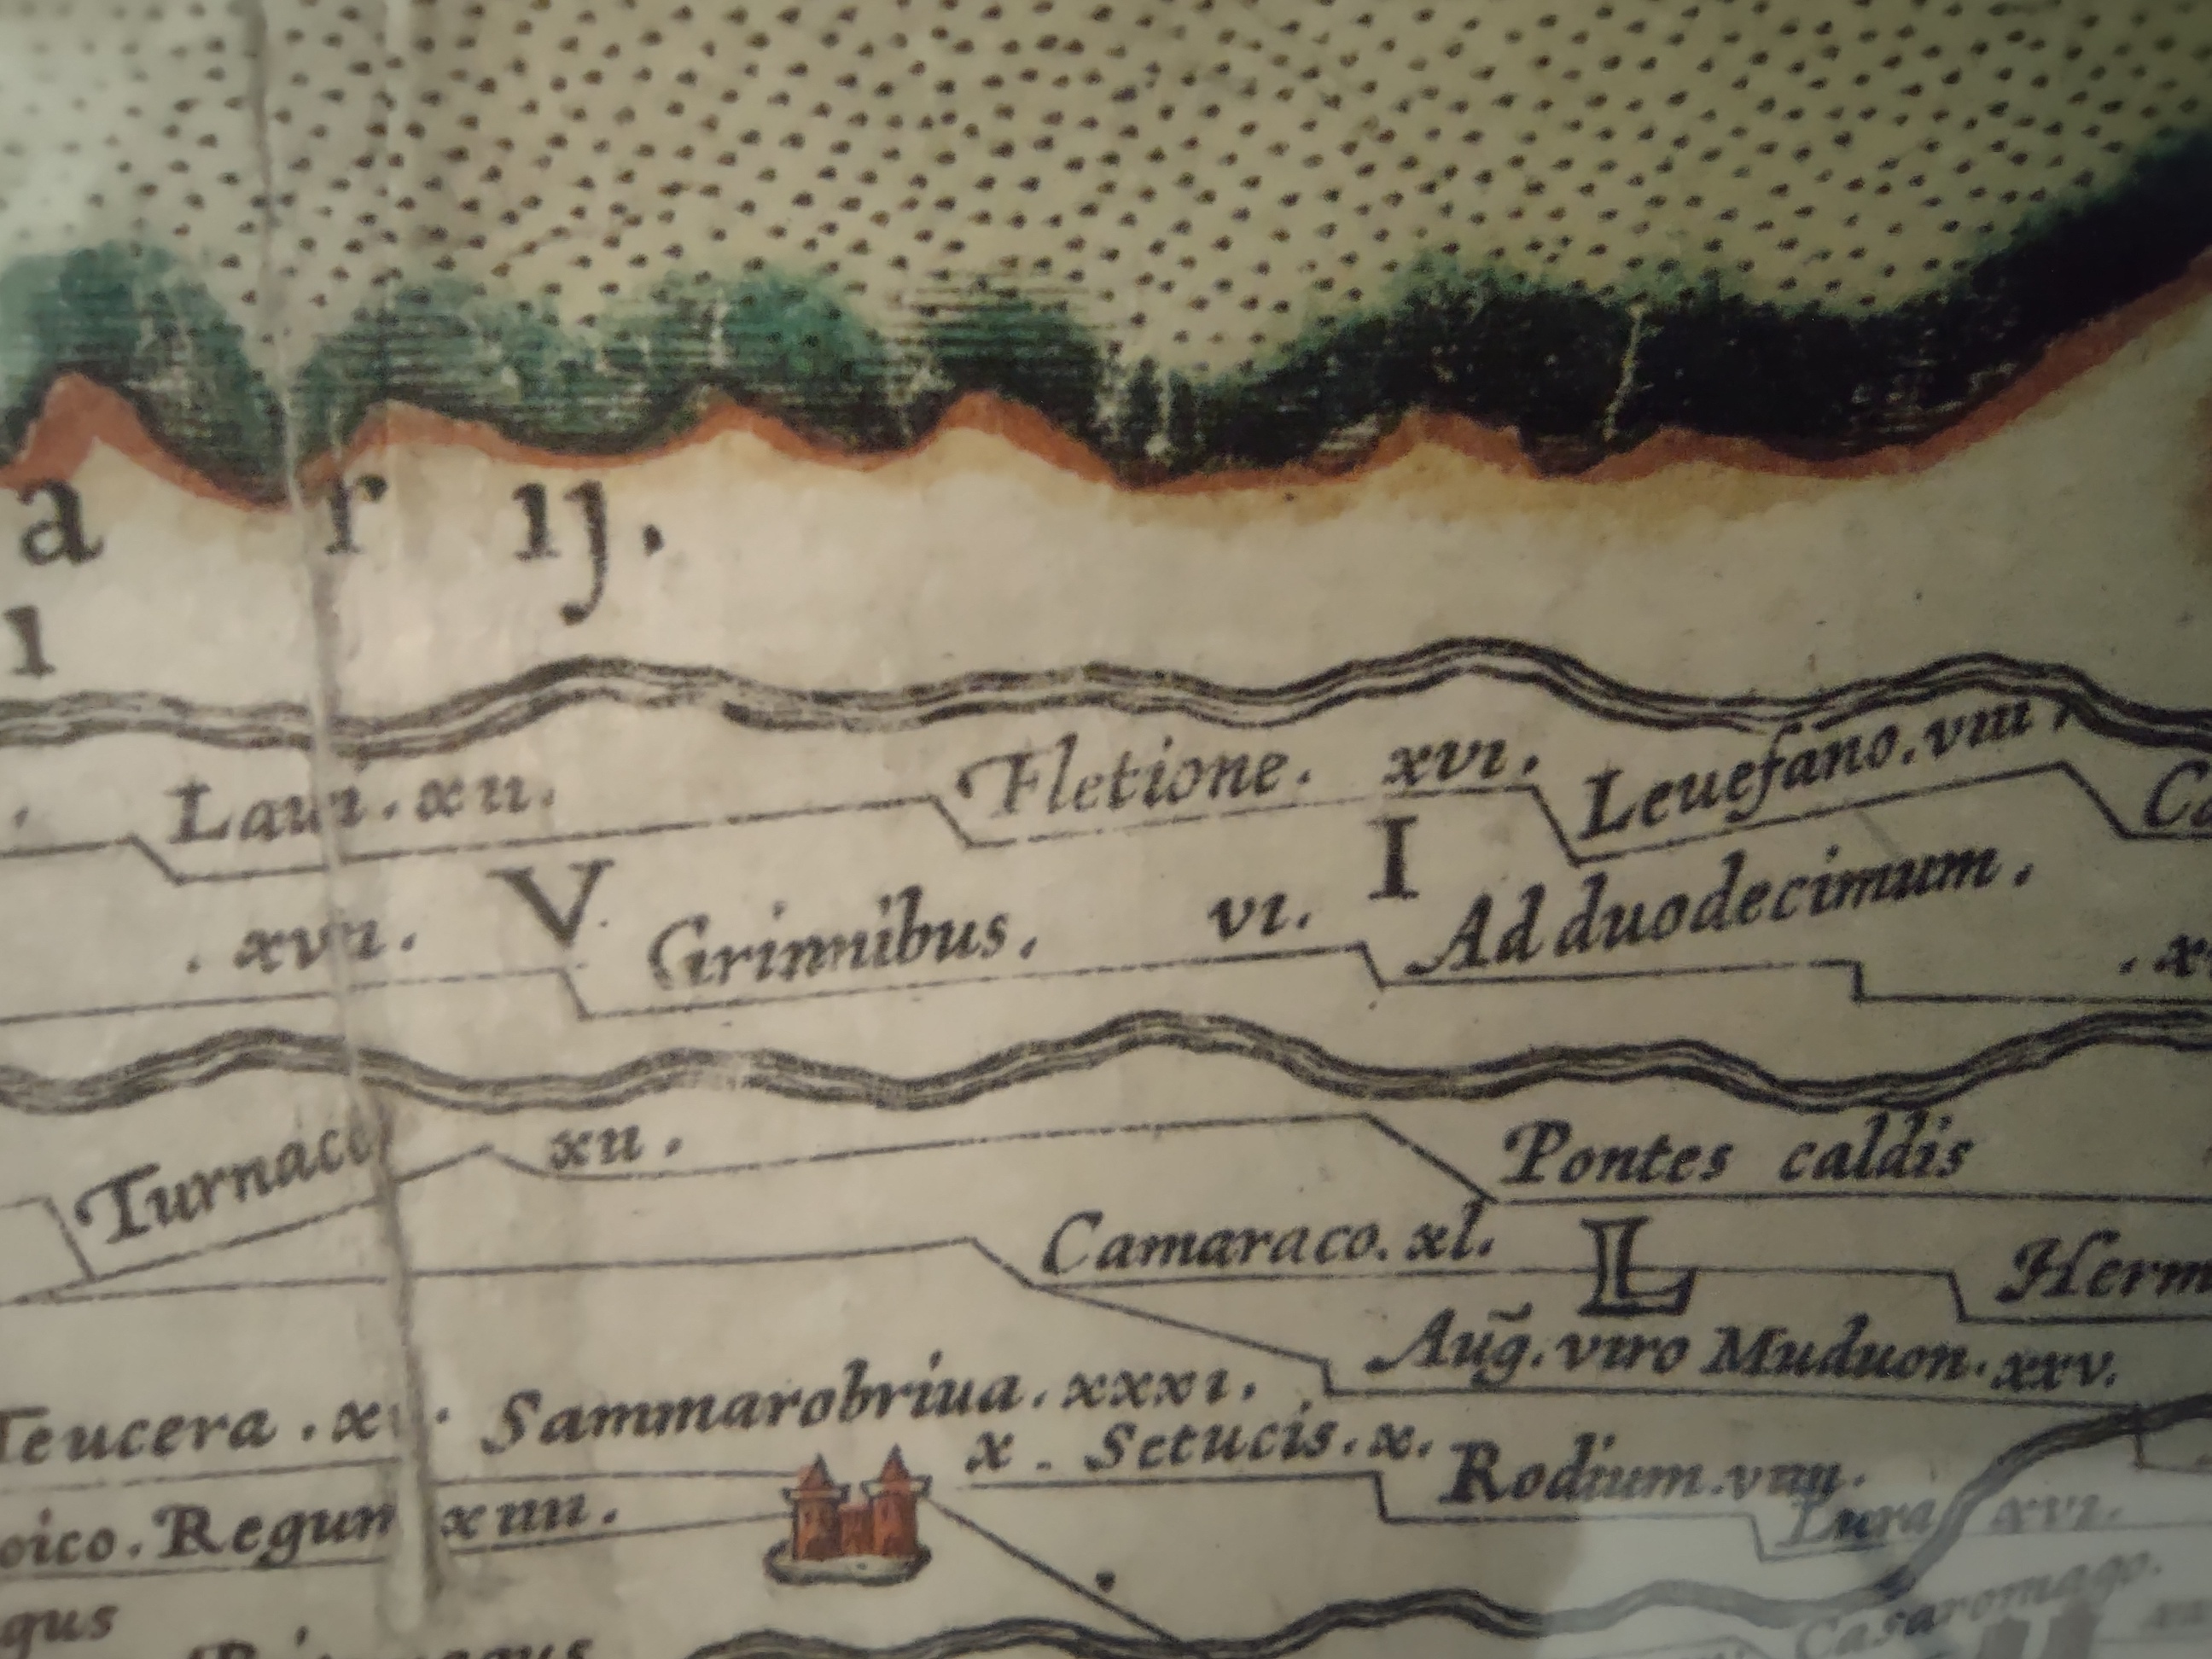 a r ıȷ.
ı
Laui. xıı. Fletione. xvı. Leuefano. vııı
V I
. xvıı. Grinnibus. vı. Ad duodecimum.
Turnaco xıı. Pontes caldis
Camaraco. xl. L Herm
Aug̃. viro Muduon. xxv.
Teucera . xı . Sammarobriua. xxxı.
x . Setucis. x. Rodium. vıııı.
oico. Regum xıııı. Lura xvı.
gus Casaromago.